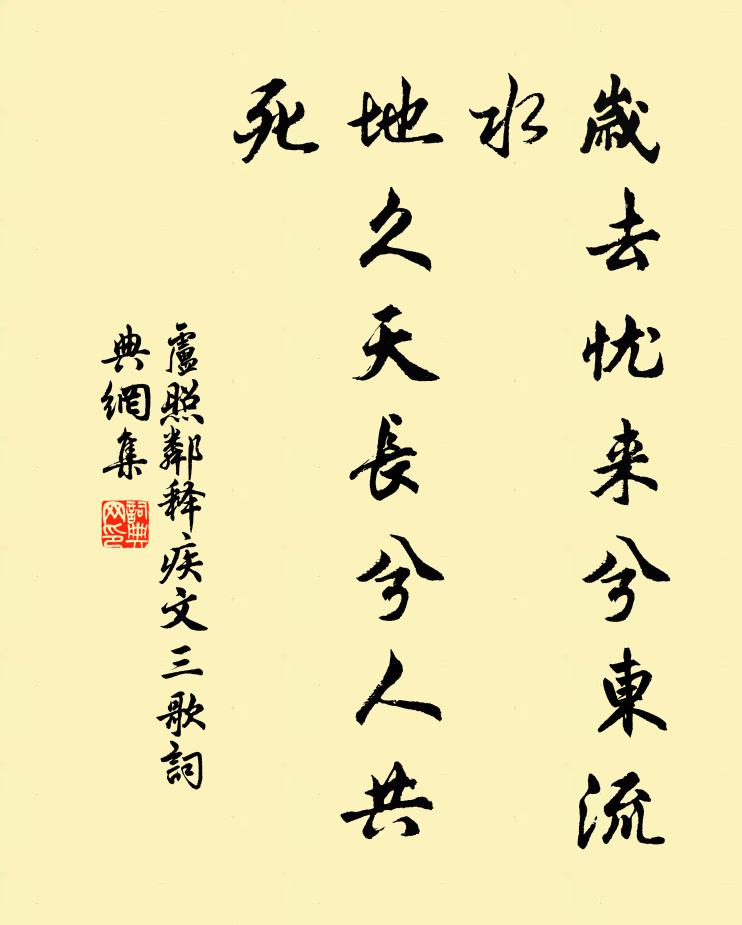 歲去忧来兮東流
水
地久天長兮人共
死
盧照鄰释疾文三歌詞
典網集
詞典
网印